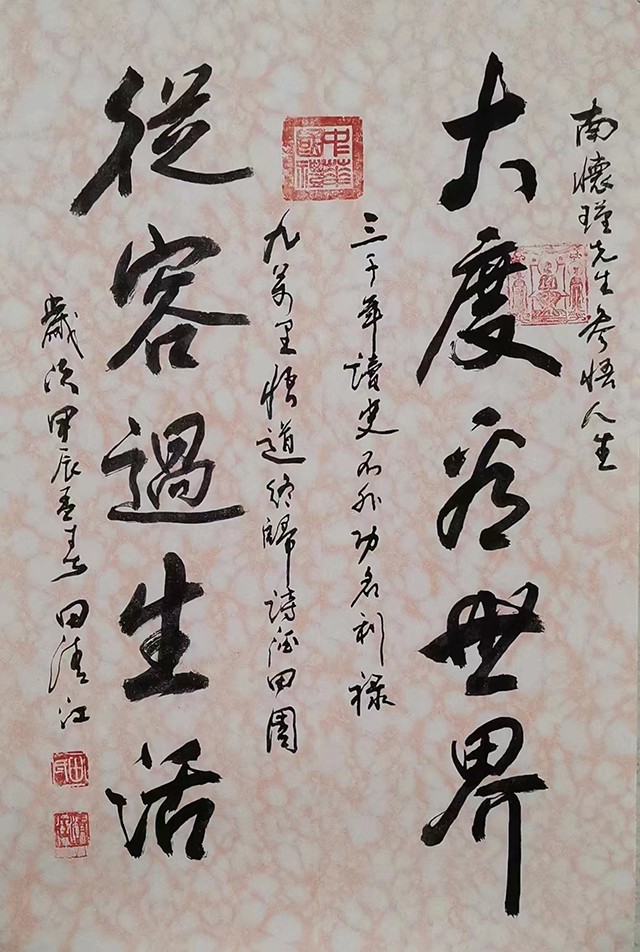 南懷瑾先生參悟人生
大度看世界
三千年讀史不外功名利祿
九萬里悟道終歸詩酒田園
從容過生活
歲次甲辰孟春 田清江
中華國禮